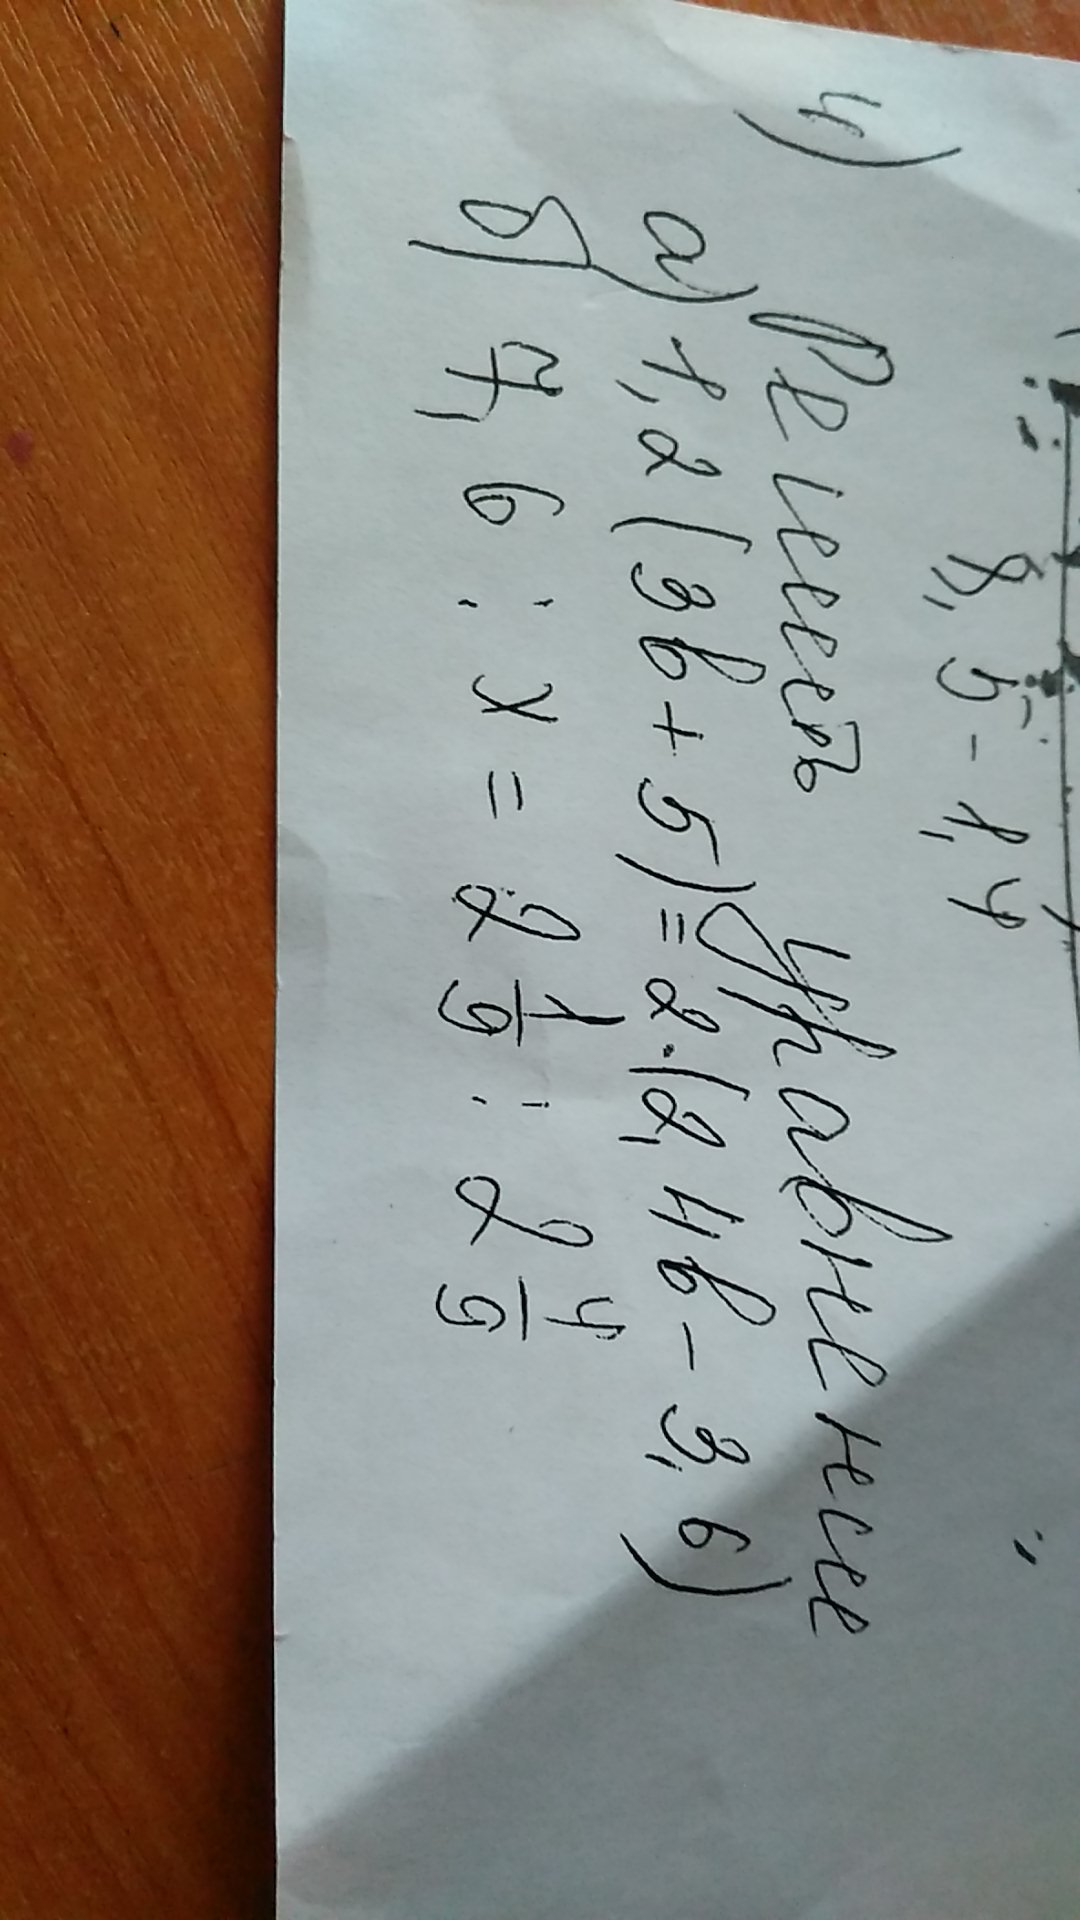 8,5 - 1,4
4) Решить уравнение
а) 1,2(3в+5)=2·(2,4в-3,6)
б) 7,6 : х = 2 1/9 : 2 4/9